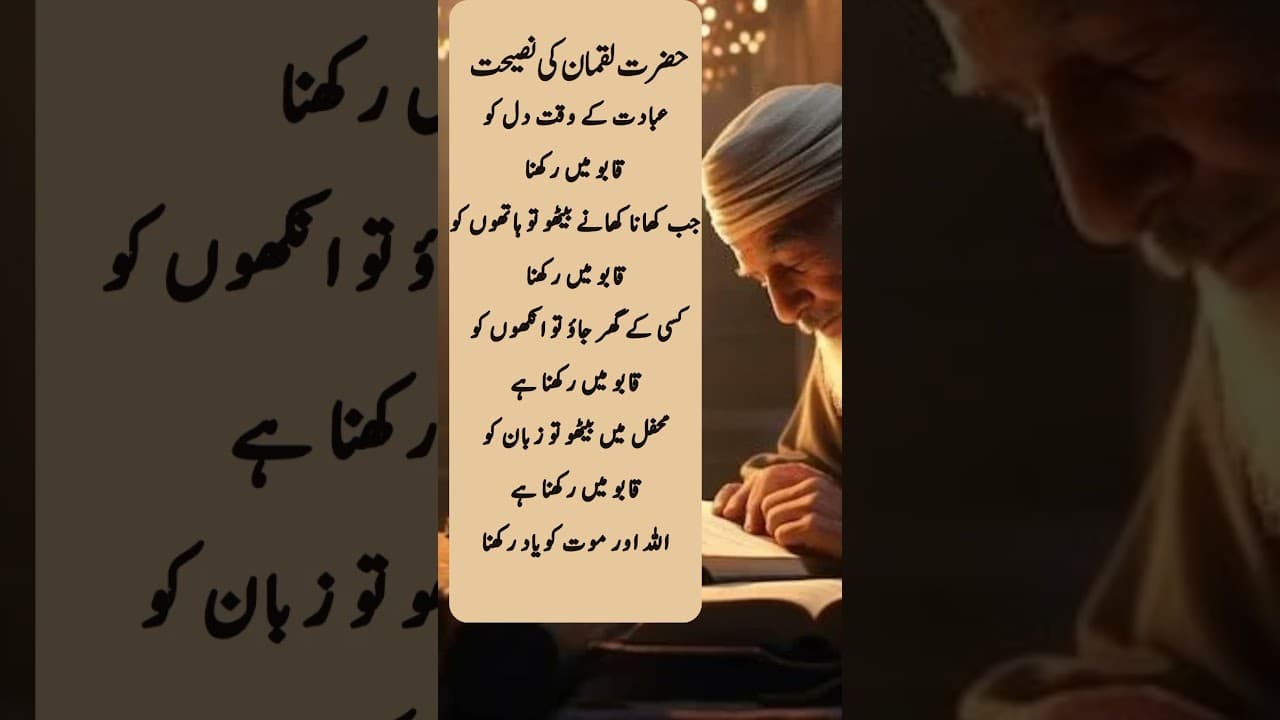 حضرت لقمان کی نصیحت
عبادت کے وقت دل کو
قابو میں رکھنا
جب کھانا کھانے بیٹھو تو ہاتھوں کو
قابو میں رکھنا
کسی کے گھر جاؤ تو انکھوں کو
قابو میں رکھنا ہے
محفل میں بیٹھو تو زبان کو
قابو میں رکھنا ہے
اللہ اور موت کو یاد رکھنا